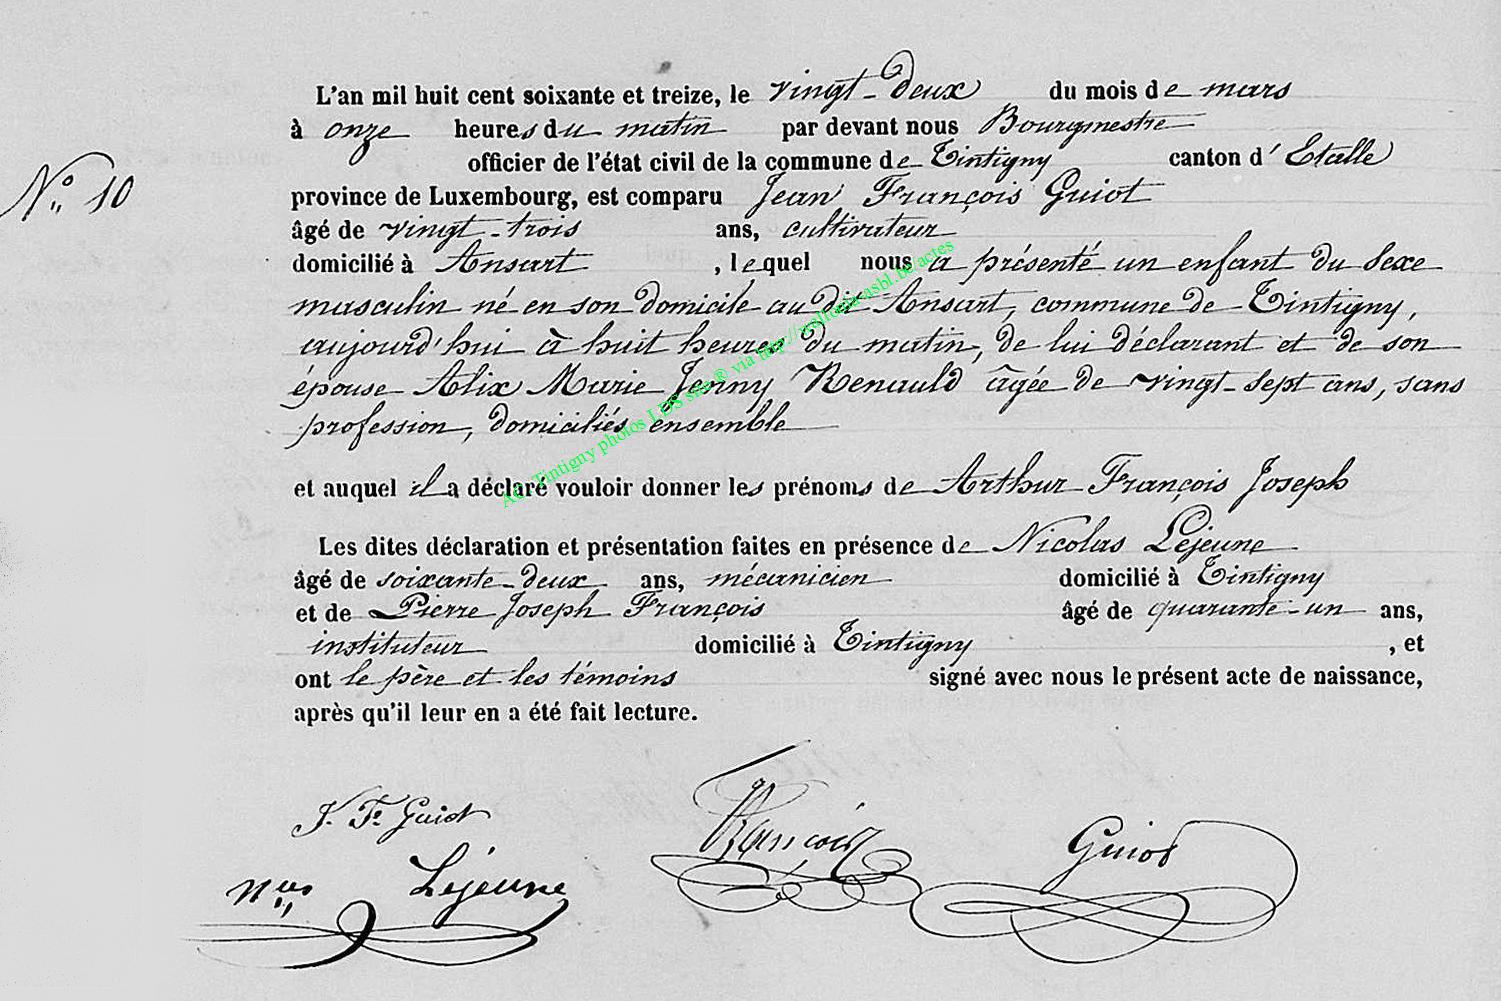 L'an mil huit cent soixante et treize, le vingt-deux du mois de mars
à onze heures du matin par devant nous Bourgmestre
officier de l'état civil de la commune de Tintigny canton d' Etalle
N° 10
province de Luxembourg, est comparu Jean François Guiot
âgé de vingt-trois ans, cultivateur
domicilié à Ansart, lequel nous a présenté un enfant du sexe
masculin né en son domicile au dit Ansart, commune de Tintigny,
aujourd'hui à huit heures du matin, de lui déclarant et de son
épouse Alix Marie Jenny Renauld âgée de vingt-sept ans, sans
profession, domiciliés ensemble
et auquel il a déclaré vouloir donner les prénoms de Arthur François Joseph
Les dites déclaration et présentation faites en présence de Nicolas Lejeune
âgé de soixante-deux ans, mécanicien domicilié à Tintigny
et de Pierre Joseph François âgé de quarante-un ans,
instituteur domicilié à Tintigny, et
ont le père et les témoins signé avec nous le présent acte de naissance,
après qu'il leur en a été fait lecture.
J. F. Guiot
François
Guiot
Nas Lejeune
AC Tintigny photos LDS site ® via http://wallonia-asbl.be/actes